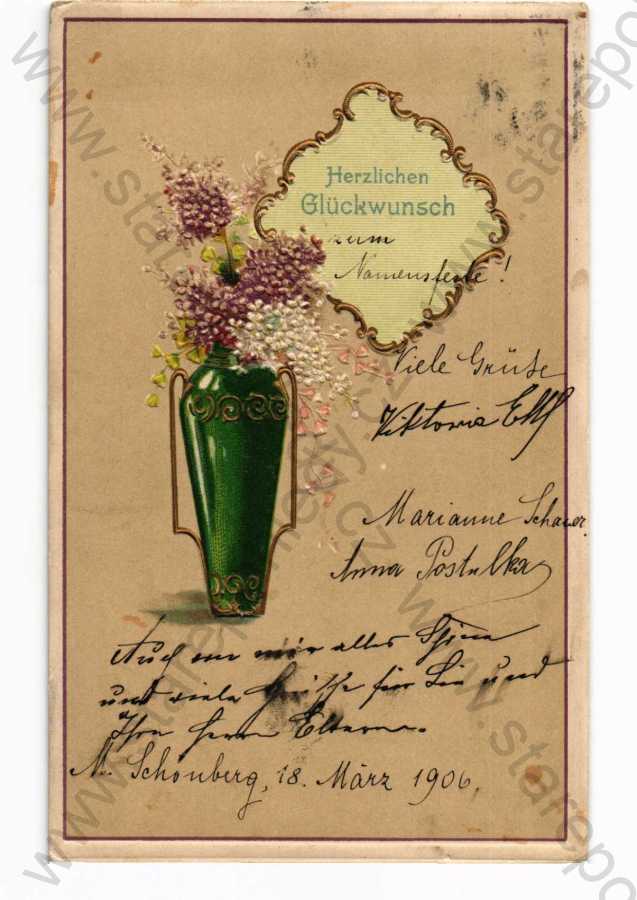 Herzlichen
Glückwunsch
zum
Namensfeste!
Viele Grüße
Viktoria
Marianne Schauer
Anna Postulka
Auch von mir alles Schöne
und viele Grüße für Sie und
Ihre Eltern.
M. Schönberg, 18. März 1906.